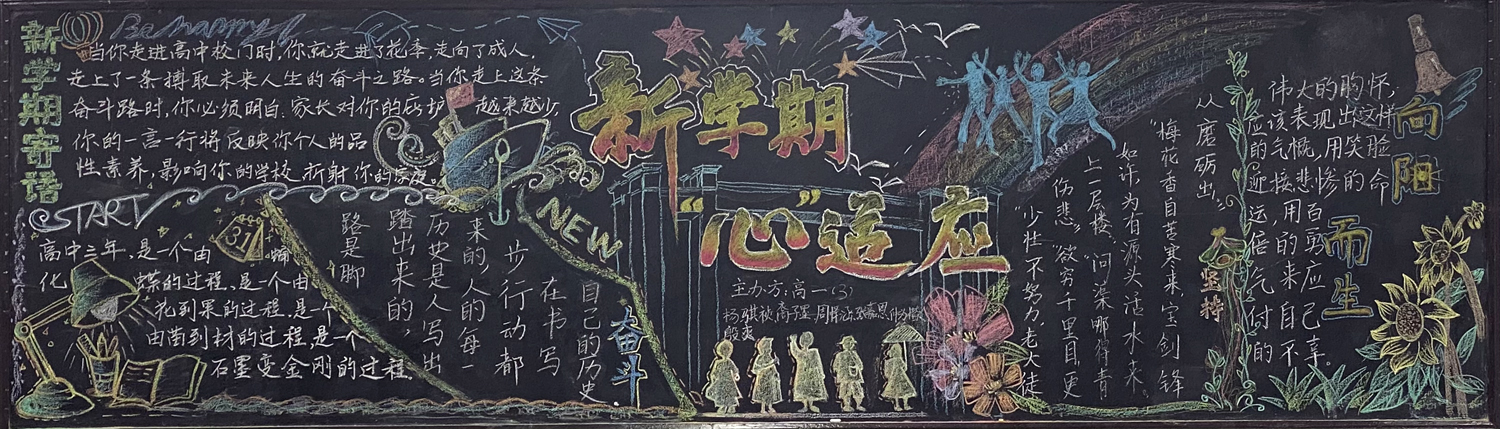 新学期寄语
Be happy!
当你走进高中校门时,你就走进了花季,走向了成人,
走上了一条搏取未来人生的奋斗之路。当你走上这条
奋斗路时,你必须明白:家长对你的庇护越来越少,
你的一言一行将反映你个人的品
性素养,影响你的学校,折射你的
START
高中三年,是一个由蛹
化蝶的过程、是一个由
花到果的过程,是一个
由苗到材的过程,是一个
石墨变金刚的过程。
31
路是脚
踏出来的,
历史是人写出
来的,人的每一
步行动都
在书写
自己的历史.
奋斗
NEW
新学期
“心”适应
主办方:高一(3)
“少壮不努力,老大徒
伤悲”“欲穷千里目,更
上一层楼”、“问渠哪得清
如许,为有源头活水来。
“梅花香自苦寒来,宝剑锋
从磨砺出”。
坚持
伟大的胸怀,
应该表现出这样
的气慨,用笑脸
迎接悲惨的命
运,用百
倍的勇
气来应
付自己
的不幸。
向阳而生